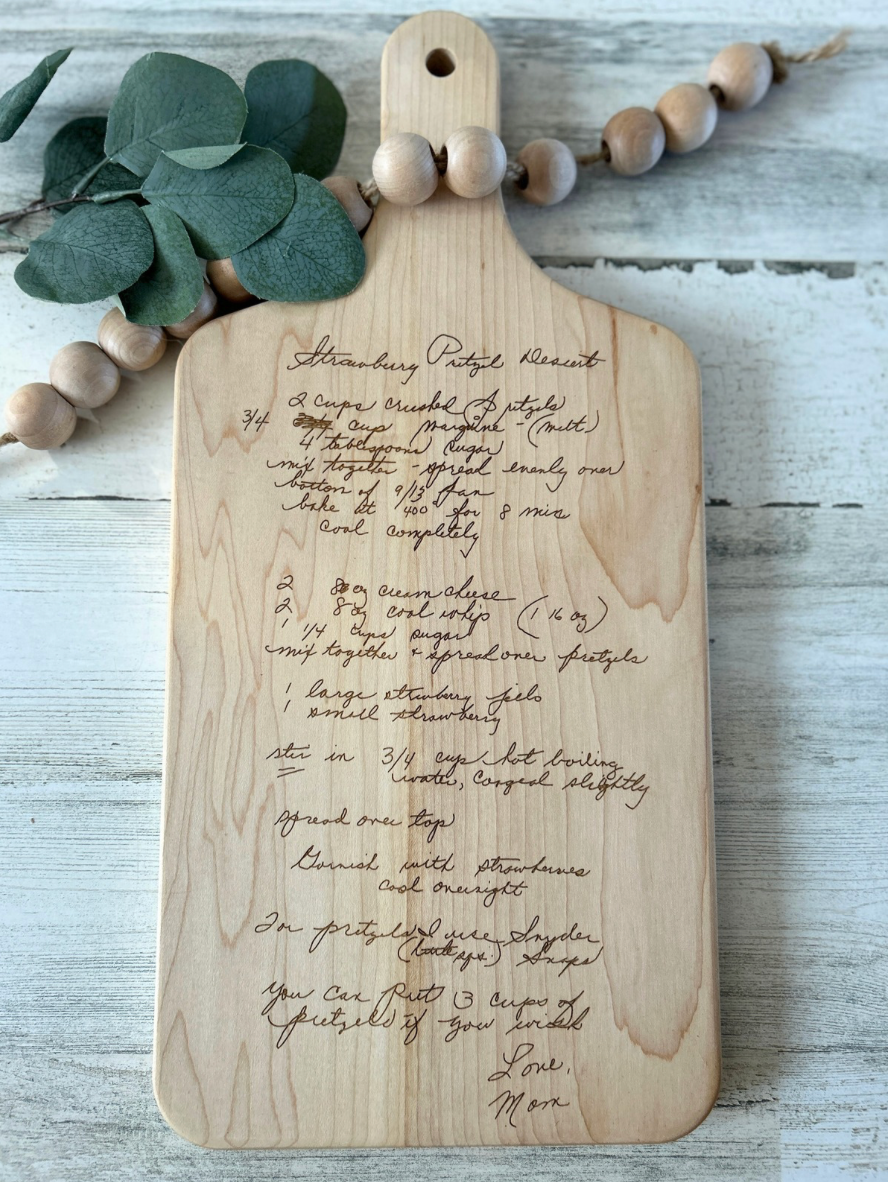 Strawberry Pretzel Desert
2 cups crushed pretzels
3/4 cup margarine - (melt)
4 tablespoons sugar
mix together - spread evenly over
bottom of 9/13 pan
bake at 400° for 8 mins
cool completely
2 8 oz cream cheese
2 8 oz cool whip (1 16 oz)
1 1/4 cups sugar
mix together & spread over pretzels
1 large strawberry jello
1 small strawberry
stir in 3/4 cup hot boiling
water, congeal slightly
spread over top
Garnish with strawberries
cool overnight
For pretzels I use Snyder
Snaps
You can put 3 cups of
pretzels if you wish
Love,
Mom